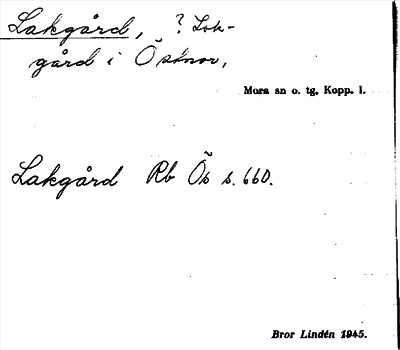 Lakgård, ? Lok-
gård i Östnor,
Mora sn o. tg. Kopp. l.
Lakgård Rb Ös s. 660.
Bror Lindén 1945.